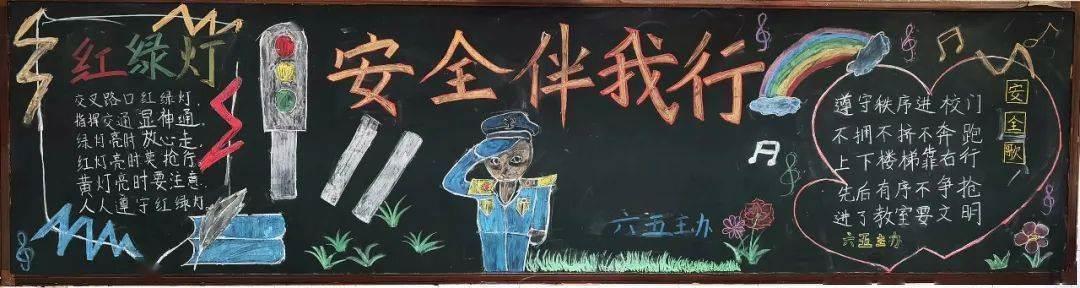 红绿灯
交叉路口红绿灯,
指挥交通显神通,
绿灯亮时放心走,
红灯亮时莫抢行,
黄灯亮时要注意
人人遵守红绿灯
安全伴我行
六五主办
安全歌
遵守秩序进校门
不拥不挤不奔跑
上下楼梯靠右行
先后有序不争抢
进了教室要文明
六五主办